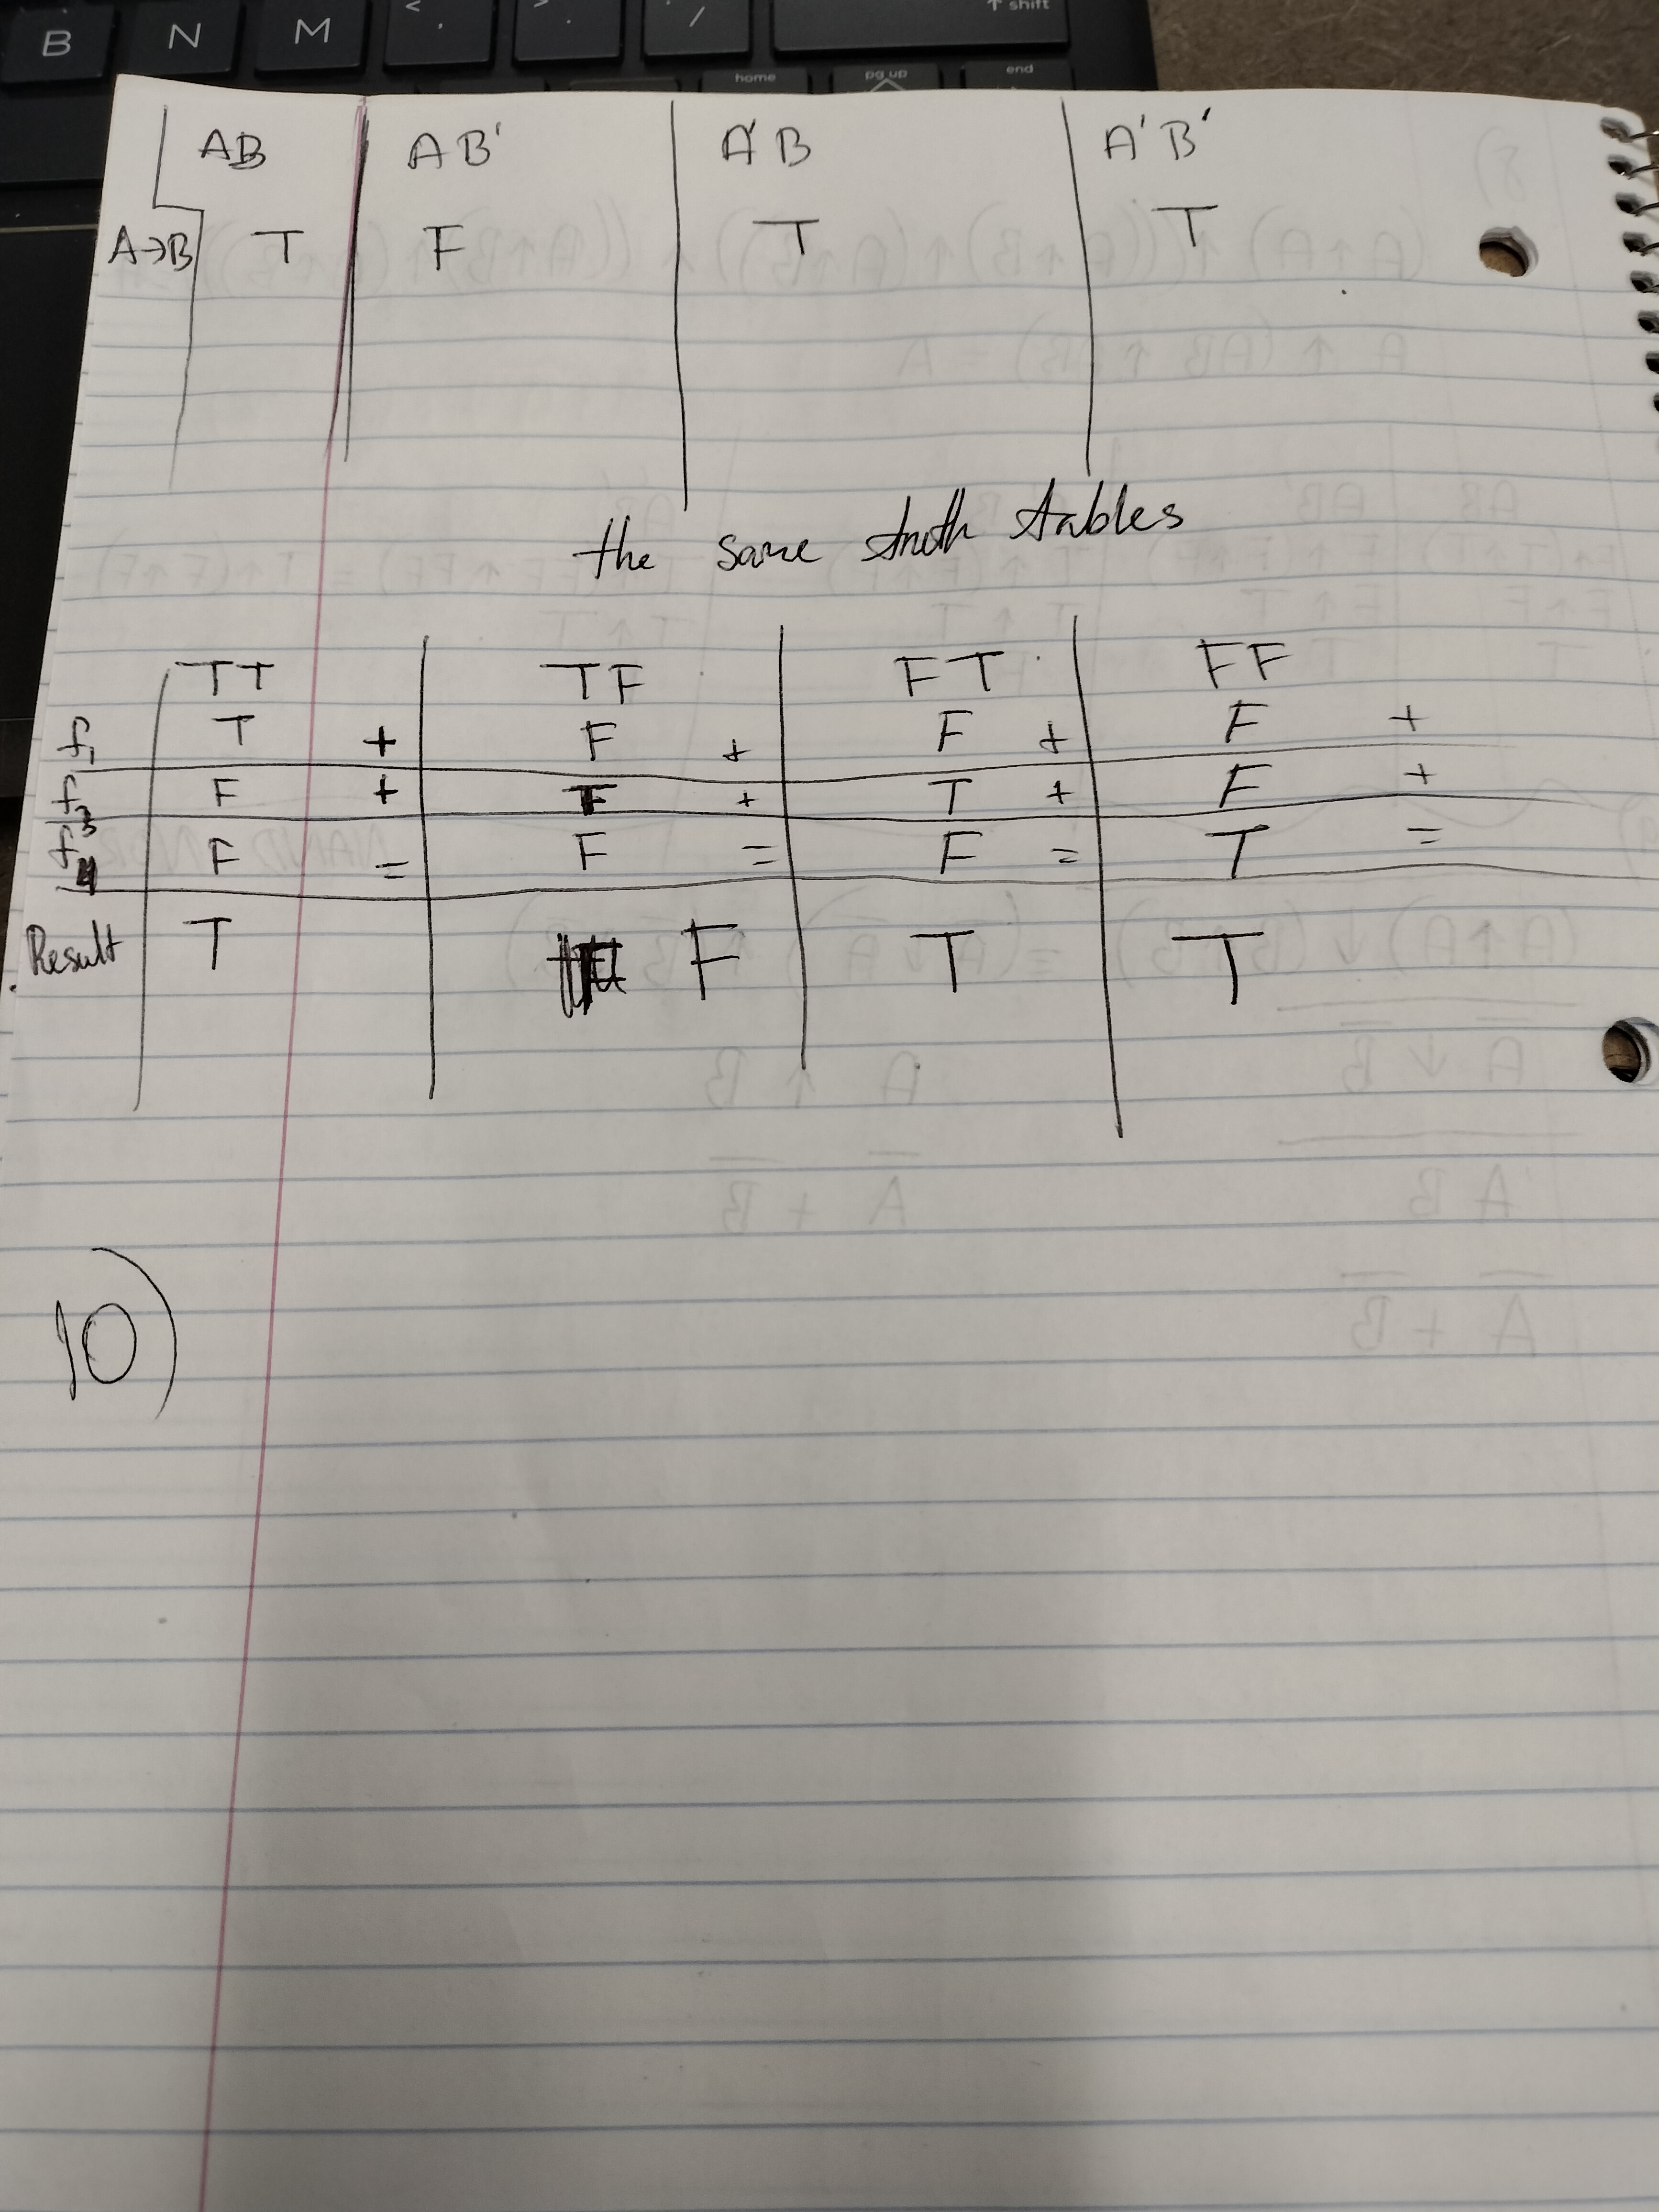 B N M < , > . / ↑ shift
home pg up end
AB AB' A'B A'B'
A→B T F T T
the same truth tables
TT TF FT FF
f1 T + F + F + F +
f3 F + F + T + F +
f4 F = F = F = T =
Result T F T T
10)